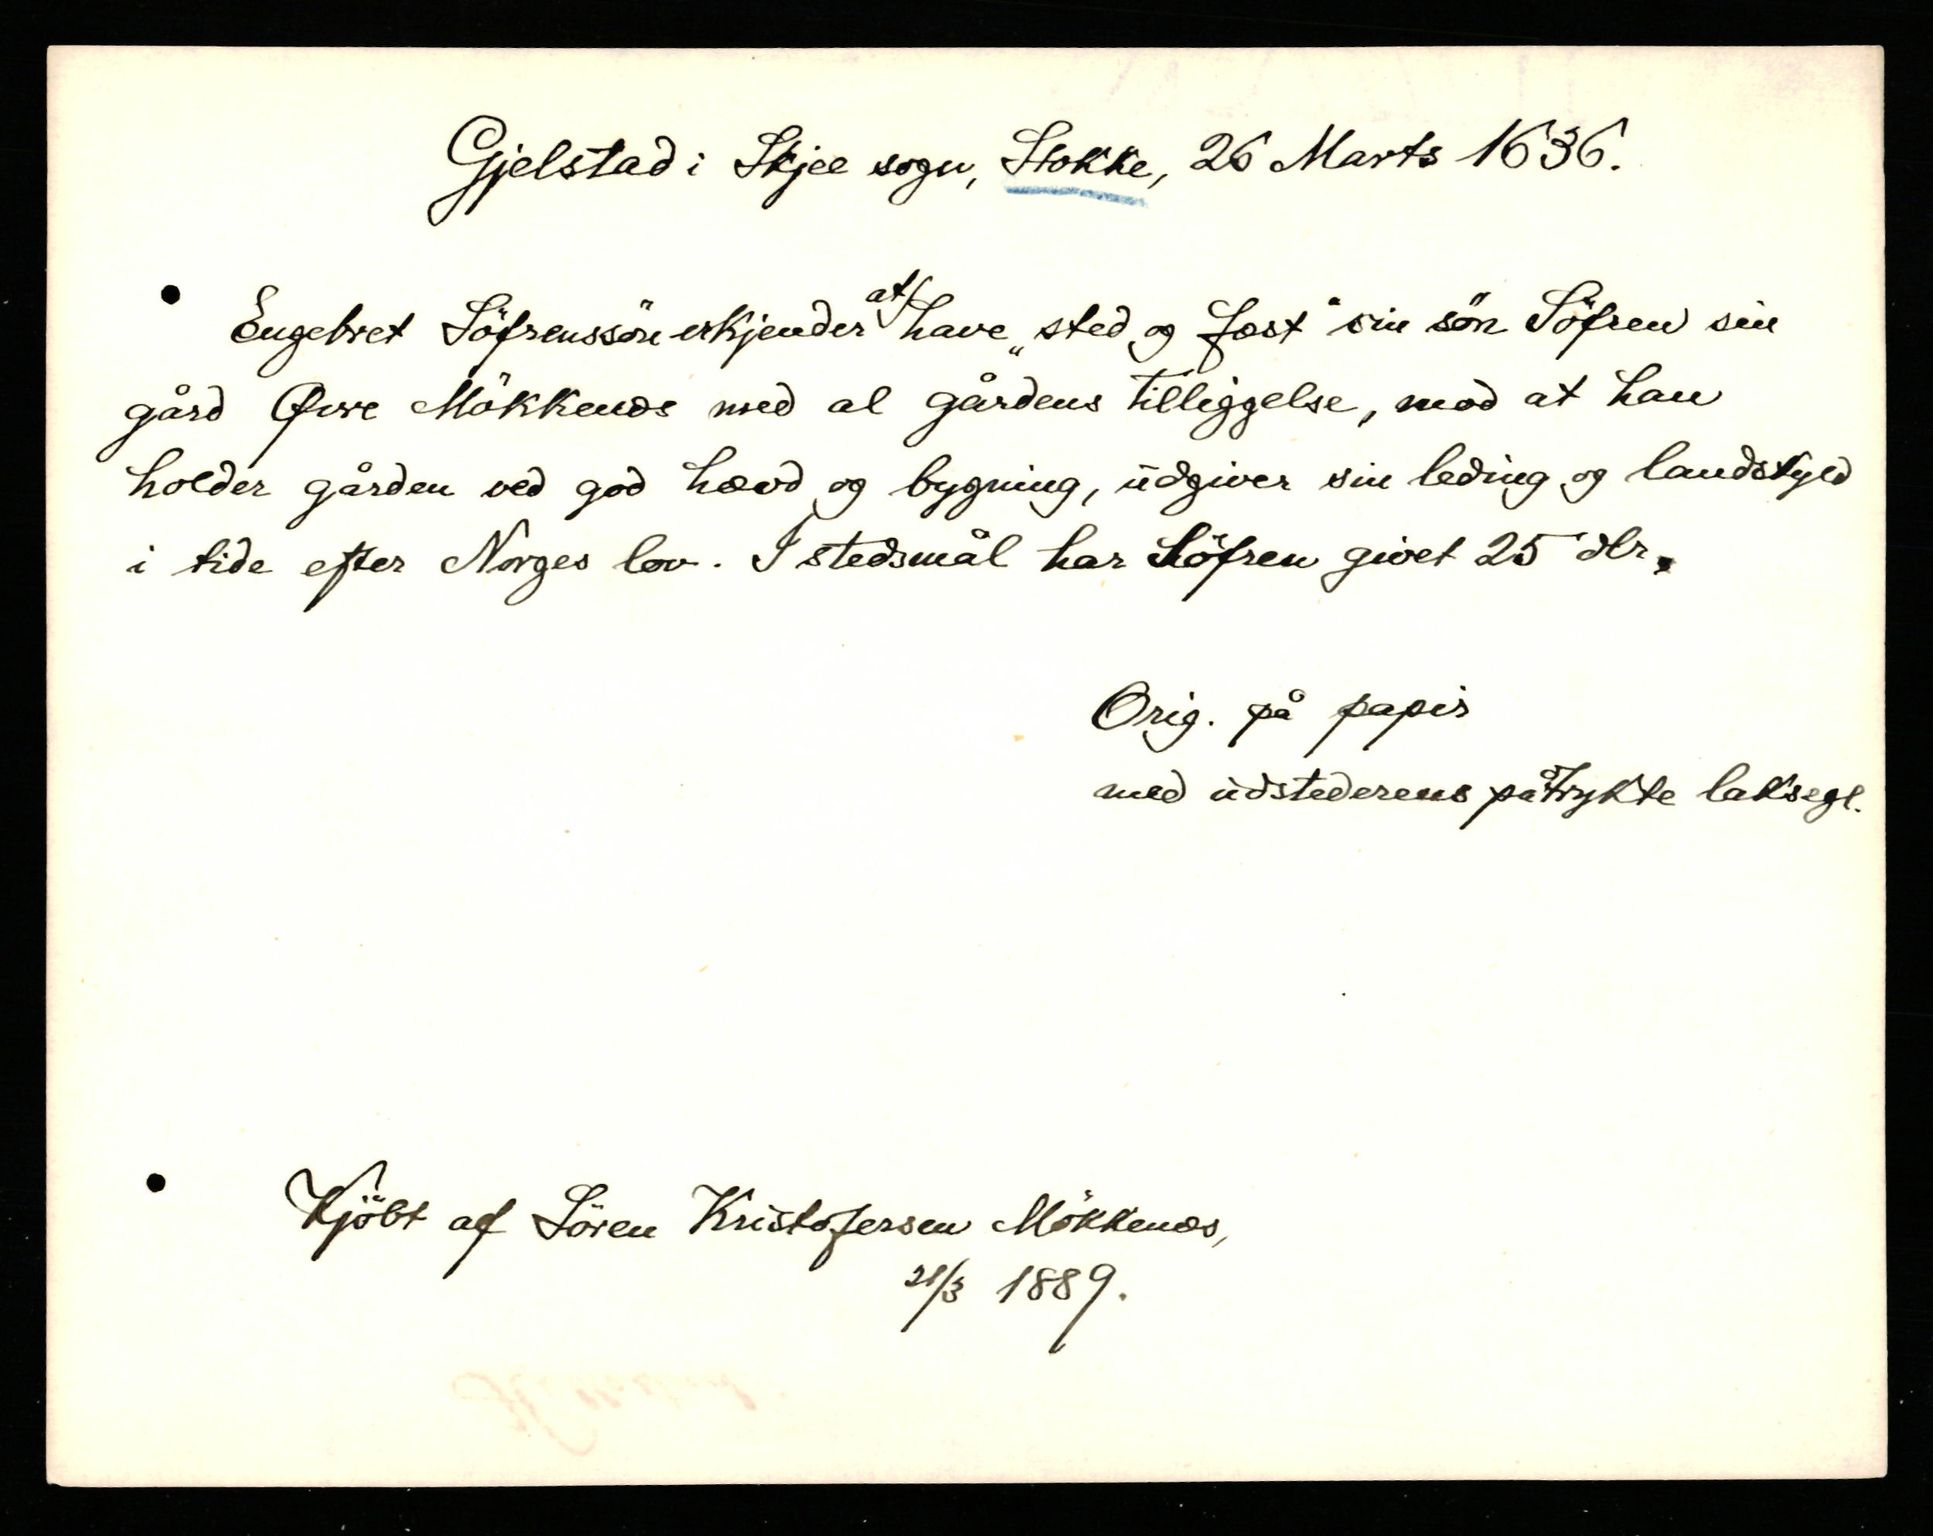 Gjelstad i Skjee sogn, Stokke, 26 Marts 1636.
Engebret Söfrenssön erkjender at have „sted og fæst“ sin sön Söfren sin
gård Øvre Mökkenæs med al gårdens tilliggelse, mod at han
holder gården ved god hævd og bygning, udgiver sin leding og landskyld
i tide efter Norges lov. I stedsmål har Söfren givet 25 dlr.
Orig. på papir
med udstederens påtrykte laksegl.
Kjöbt af Sören Kristofersen Mökkenæs,
21/3 1889.